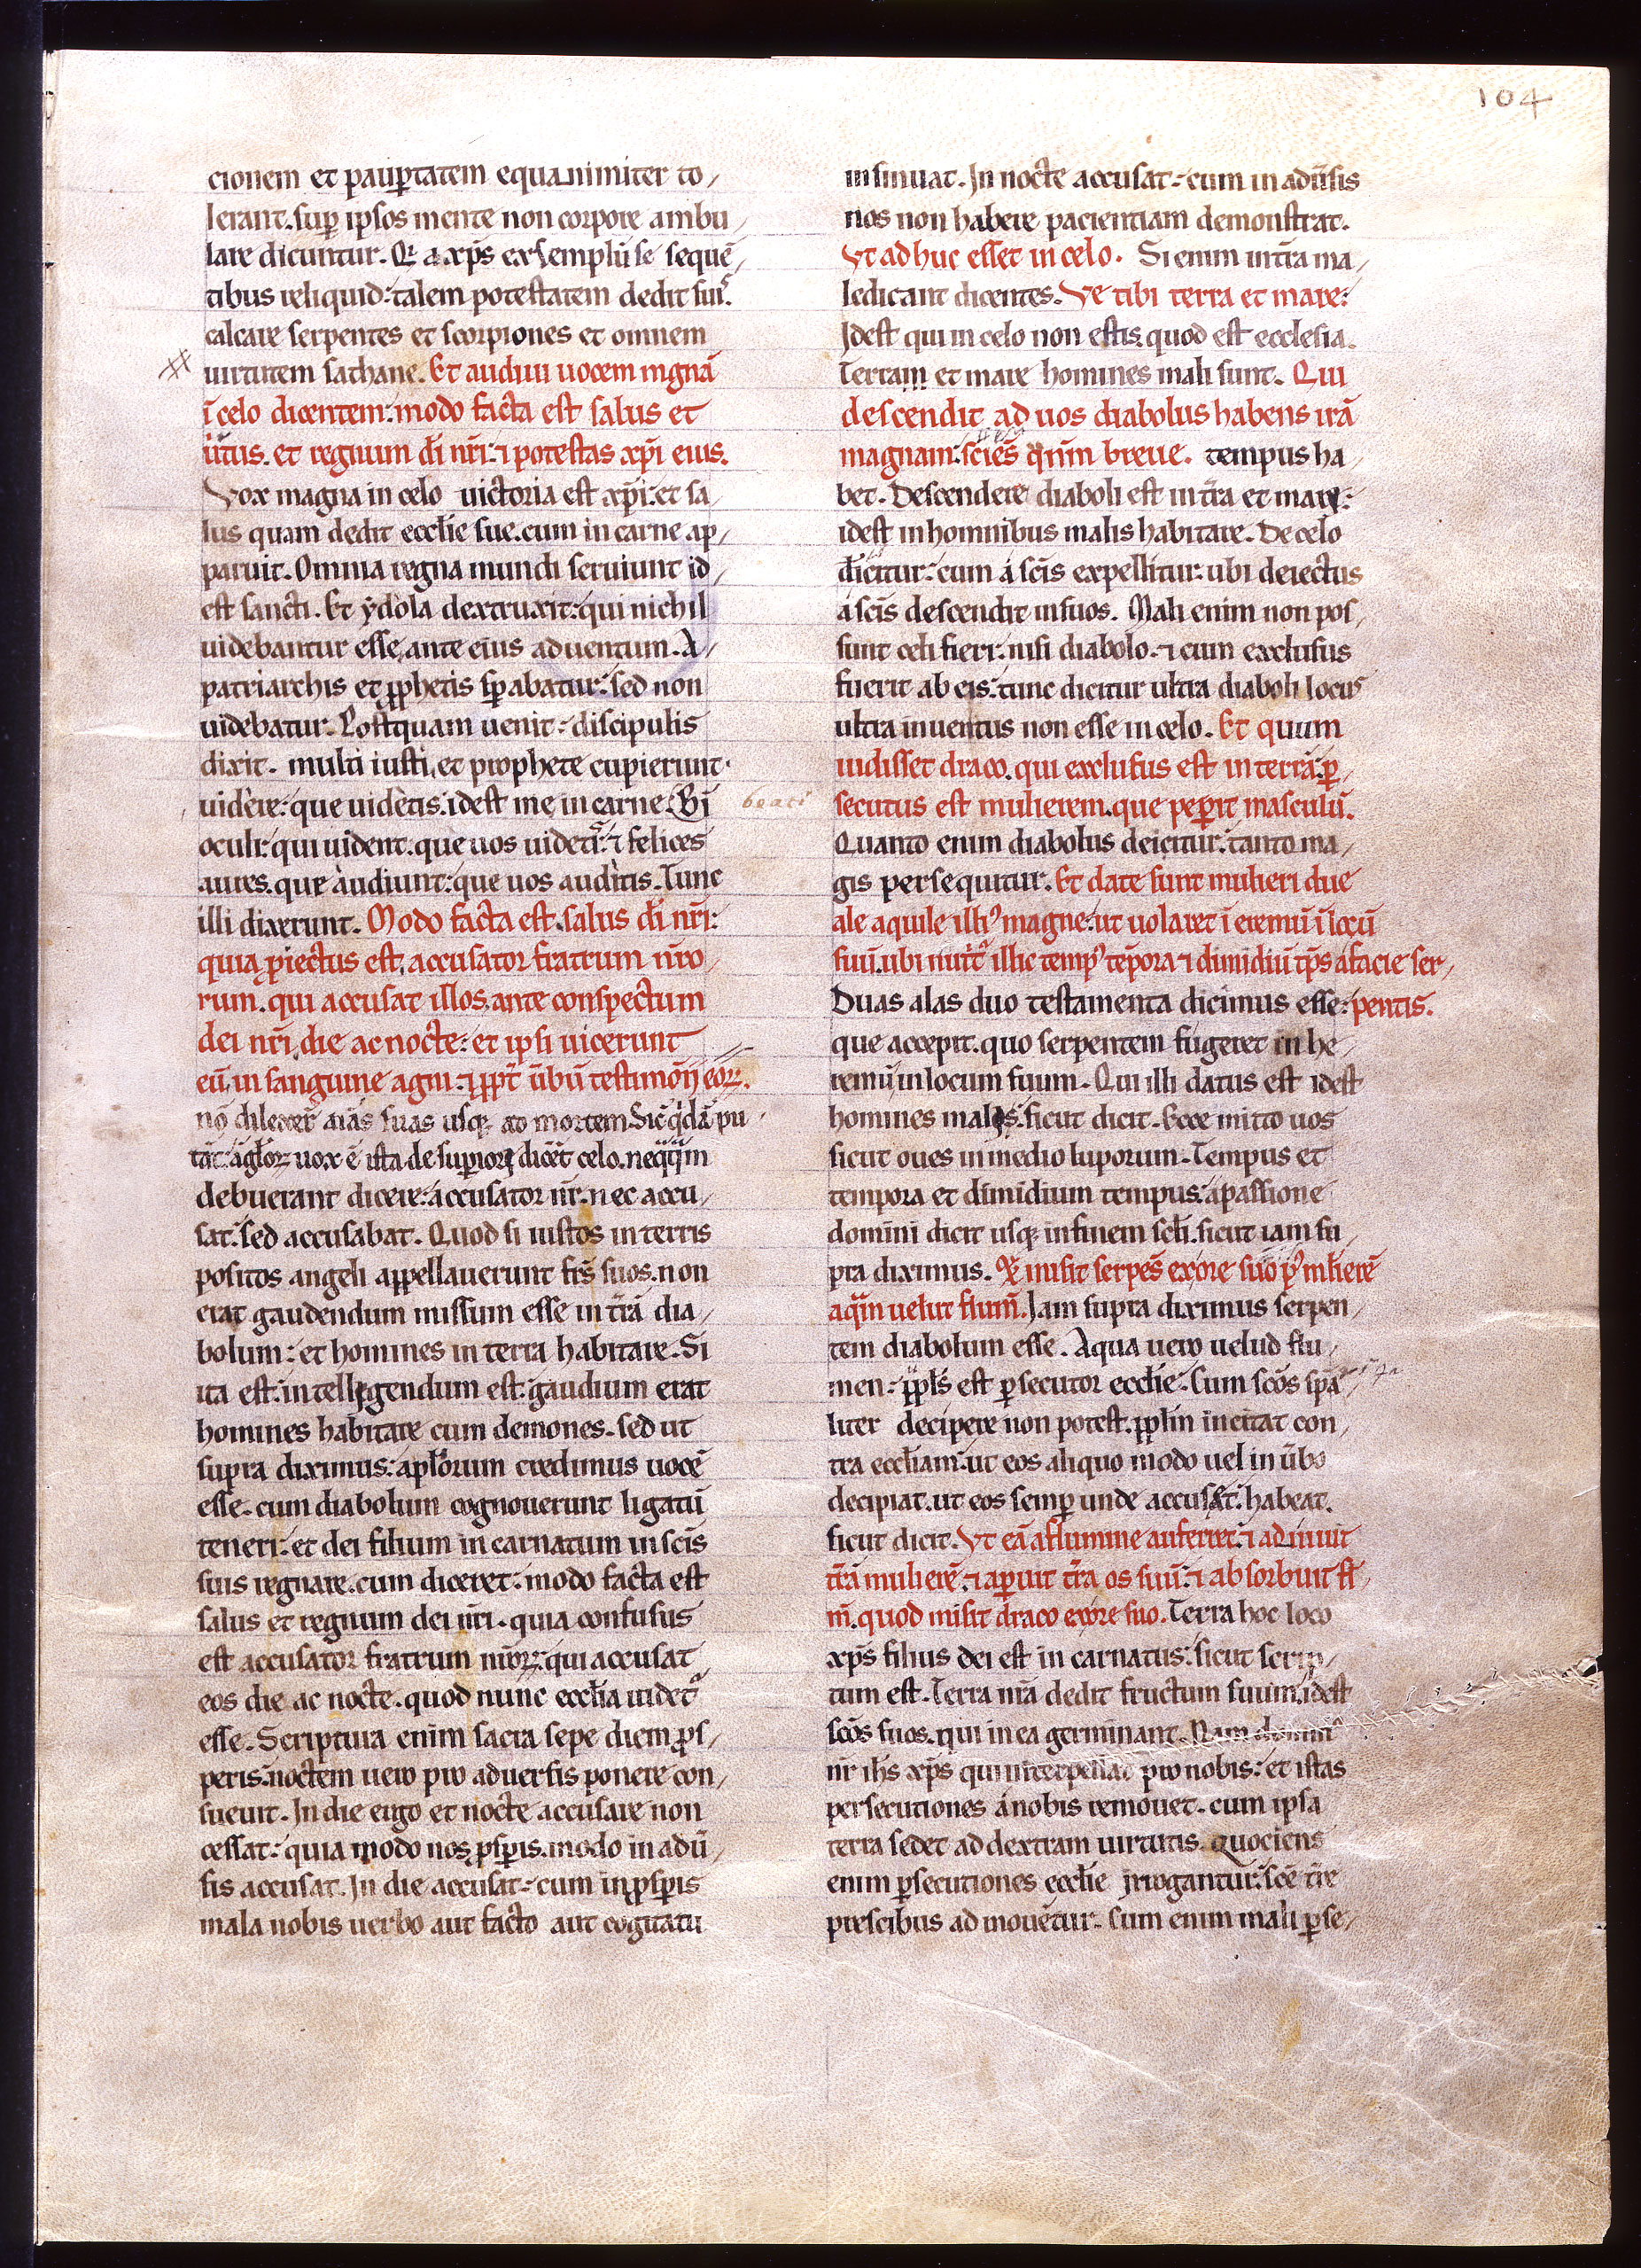 104
cionem et paup̄tatem equanimiter to/
lerant. sup̄ ipsos mente non corpore ambu/
lare dicuntur. Q̄ a xp̄s exsemplū se sequē/
tibus reliquid: talem potestatem dedit suis.
calcare serpentes et scorpiones et omnem
uirtutem sathane. Et audiui uocem mgnā
ī celo dicentem: modo facta est salus et
uirtus. et regnum dī nr̄i: ⁊ potestas xp̄i eius.
Vox magna in celo uictoria est xp̄i: et sa/
lus quam dedit eccl̄ie sue. cum in carne ap/
paruit. Omnia regna mundi seruiunt id/
est sancti. Et ydola dextruxit: qui nichil
uidebantur esse ante eius aduentum. A/
patriarchis et p̄phetis sp̄abatur: sed non
uidebatur. Postquam uenit: discipulis
dixit. multi iusti et prophete cupierunt
uidere: que uidetis. idest me in carne. Bī
beati
oculi: qui uident. que uos uidetis: ⁊ felices
aures. que audiunt: que uos auditis. Tunc
illi dixerunt. Modo facta est salus dī nr̄i:
quia p̄iectus est accusator fratrum nr̄o/
rum. qui accusat illos. ante conspectum
dei nr̄i die ac nocte: et ipsi uicerunt
eū in sanguine agni: ⁊ ppt̄ ūbū testimonīj eoꝝ.
nō dilexer̄ aīas suas usqꝫ ad mortem. Sic q̇dā pu/
tāt: āgl̄oꝝ uox ē ista de superiore dicēt celo. neq̄q̄m
debuerant dicere: accusator nr̄. nec accu/
sat: sed accusabat. Quod si iustos in terris
positos angeli appellauerunt fr̄s suos. non
erat gaudendum missum esse in tr̄a dia/
bolum: et homines in terra habitare. Si
ita est: intelligendum est: gaudium erat
homines habitare cum demones. sed ut
supra diximus: apl̄orum credimus uocē
esse. cum diabolum cognouerunt ligatū
teneri: et dei filium in carnatum in sc̄is
suis regnare. cum diceret: modo facta est
salus et regnum dei nr̄i. quia confusus
est accusator fratrum nr̄oꝝ: qui accusat
eos die ac nocte. quod nunc eccl̄ia uidet᷑
esse. Scriptura enim sacra sepe diem p̄s/
peris: noctem uero pro aduersis ponere con/
sueuit. In die ergo et nocte accusare non
cessat: quia modo nos p̄sp̄is. modo in adū/
sis accusat. In die accusat: cum in p̄sp̄is
mala nobis uerbo aut facto aut cogitatu
insinuat. In nocte accusat: cum in adūsis
nos non habere pacientiam demonstrat.
Vt adhuc esset in celo. Si enim in tr̄a ma/
ledicant dicentes. Ve tibi terra et mare:
Idest qui in celo non estis quod est ecclesia.
Terram et mare homines mali sunt. Qui
descendit ad uos diabolus habens irā
magnam: sciēs qn̄m breue. tempus ha/
bet. Descendere diaboli est in tr̄a et mare:
idest in homnibus malis habitare. De celo
dicitur: cum a sc̄is expellitur: ubi deiectus
a sc̄is descendit in suos. Mali enim non pos/
sunt celi fieri: nisi diabolo. ⁊ cum exclusus
fuerit ab eis: tunc dicitur ultra diaboli locus
ultra inuentus non esse in celo. Et quum
uidisset draco. qui exclusus est in terrā: p̄/
secutus est mulierem. que pep̄it masculū.
Quanto enim diabolus deicitur: tanto ma/
gis persequitur. Et date sunt mulieri due
ale aquile illi᾽ magne: ut uolaret ī eremū ī locū
suū. ubi nutr̄ illic temp᾽ tēpora ⁊ dimidiū tp̄s a facie ser/
Duas alas duo testamenta dicimus esse: pentis.
que accepit. quo serpentem fugeret in he/
remū in locum suum. Qui illi datus est idest
homines malos: sicut dicit. Ecce mitto uos
sicut oues in medio luporum. Tempus et
tempora et dimidium tempus: a passione
domini dicit usqꝫ in finem scl̄i. sicut iam su/
pra diximus. Et misit serpēs ex ore suo p᾽ mlīerē
aq̄m uelut flum̄. Iam supra diximus serpen/
tem diabolum esse. Aqua uero uelud flu/
men: ppl̄s est p̄secutor eccl̄ie. Cum sc̄os sp̄a/
liter decipere non potest. ppl̄m incitat con/
tra eccl̄iam: ut eos aliquo modo uel in ūbo
decipiat. ut eos semp̄ unde accuset. habeat.
sicut dicit. Vt eā a flumine auferret: ⁊ adiuuit
tr̄a mulierē. ⁊ ap̄uit tr̄a os suū: ⁊ absorbuit fl/
m̄. quod misit draco ex ore suo. Terra hoc loco
xp̄s filius dei est in carnatus: sicut scrip/
tum est. Terra nr̄a dedit fructum suum. idest
sc̄os suos. qui in ea germinant. Nam domin᾽
nr̄ ih̄s xp̄s qui interpellat pro nobis: et istas
persecutiones a nobis remouet. cum ipsa
terra sedet ad dextram uirtutis. quociens
enim p̄secutiones eccl̄ie irrogantur: sc̄e tr̄e
prescibus admouētur. Cum enim mali p̄se/